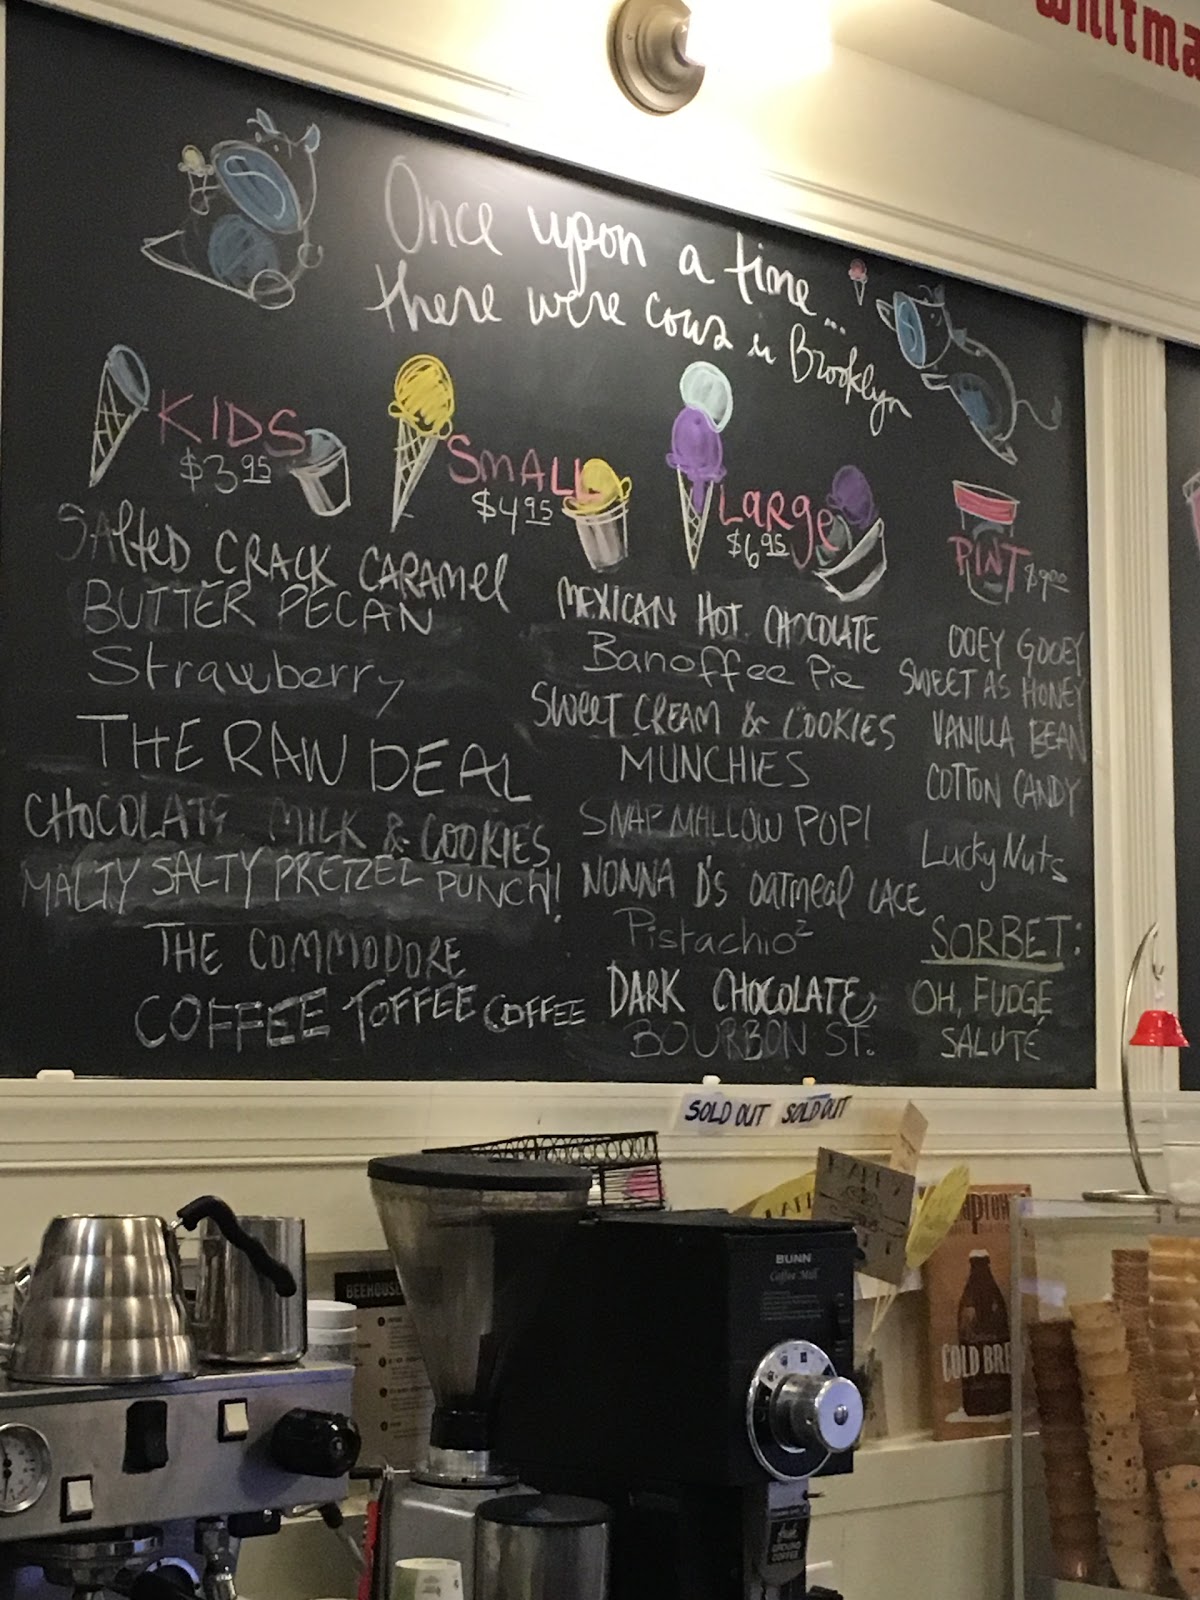 Once upon a time...
there were cows in Brooklyn
KIDS
$3.95
SMALL
$4.95
LARge
$6.95
PINT $9.00
SAlteD CRACK CARAMel
BUTTER PECAN
Strawberry
THE RAW DEAL
CHOCOLATE MILK & COOKIES
MALTY SALTY PRETZEL PUNCH!
THE COMMODORE
COFFEE TOFFEE COFFEE
MEXICAN HOT CHOCOLATE
Banoffee Pie
SWEET CREAM & COOKIES
MUNCHIES
SNAP MALLOW POP!
NONNA D's oatmeal LACE
Pistachio²
DARK CHOCOLATE
BOURBON ST.
OOEY GOOEY
SWEET AS HONEY
VANILLA BEAN
COTTON CANDY
Lucky Nuts
SORBET:
OH, FUDGE
SALUTÉ
SOLD OUT SOLD OUT
BUNN
Coffee Mill
BEEHOUSE
COLD BRE
GROUND
COFFEE